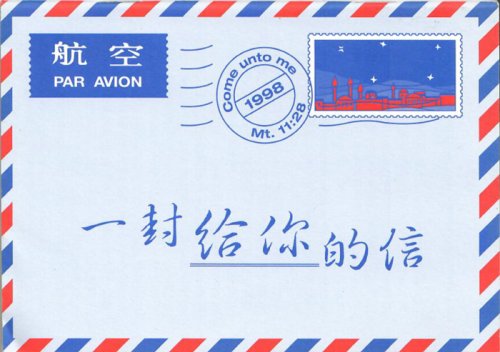 航空
PAR AVION
Come unto me
1998
Mt. 11:28
一封给你的信